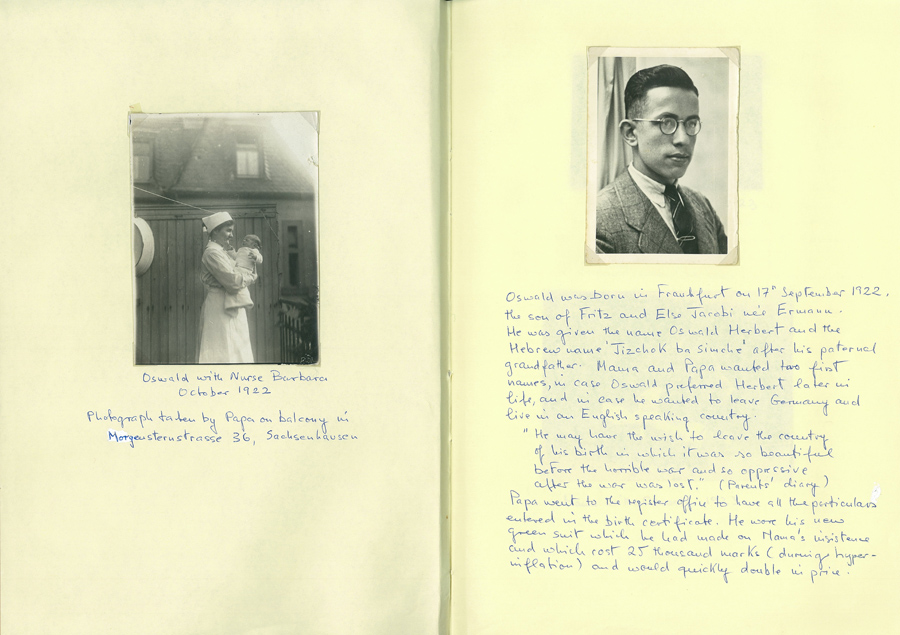 Oswald with Nurse Barbara
October 1922
Photograph taken by Papa on balcony in
Morgensternstrasse 36, Sachsenhausen
Oswald was born in Frankfurt on 17th September 1922,
the son of Fritz and Else Jacobi née Ermann.
He was given the name Oswald Herbert and the
Hebrew name 'Jizchok ba Simche' after his paternal
grandfather. Mama and Papa wanted two first
names, in case Oswald preferred Herbert later in
life, and in case he wanted to leave Germany and
live in an English speaking country.
"He may have the wish to leave the country
of his birth in which it was so beautiful
before the horrible war and so oppressive
after the war was lost." (Parents' diary)
Papa went to the register office to have all the particulars
entered in the birth certificate. He wore his new
green suit which he had made on Mama's insistence
and which cost 25 thousand marks (during hyper-
inflation) and would quickly double in price.